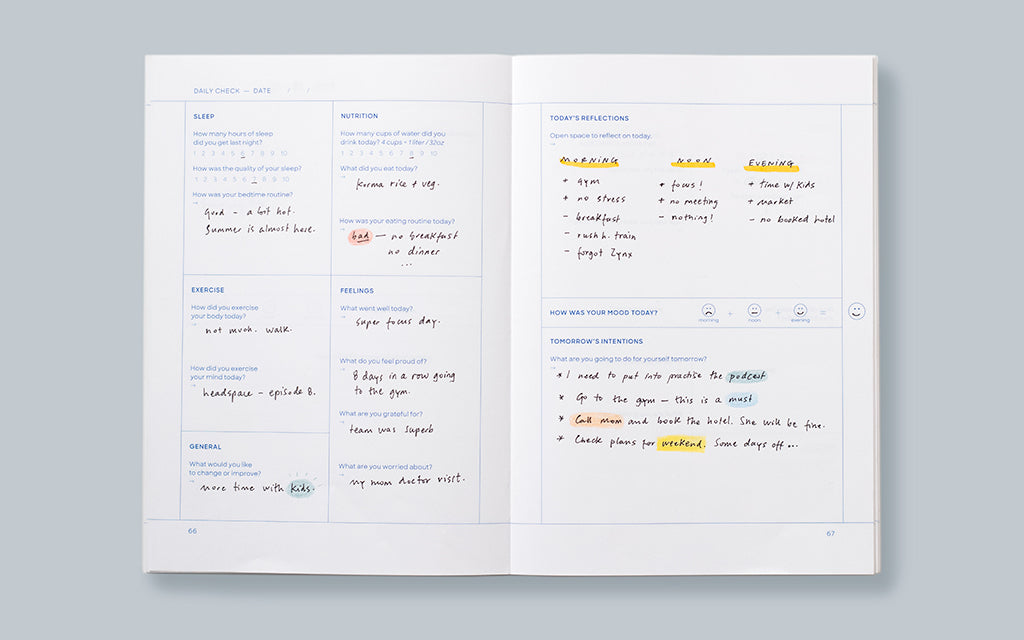 DAILY CHECK — DATE / /
SLEEP
How many hours of sleep
did you get last night?
1 2 3 4 5 6 7 8 9 10
How was the quality of your sleep?
1 2 3 4 5 6 7 8 9 10
How was your bedtime routine?
Good - a bit hot.
Summer is almost here.
NUTRITION
How many cups of water did you
drink today? 4 cups = 1 liter / 32oz
1 2 3 4 5 6 7 8 9 10
What did you eat today?
korma rice + veg.
How was your eating routine today?
bad — no breakfast
no dinner
...
EXERCISE
How did you exercise
your body today?
not much. walk.
How did you exercise
your mind today?
headspace - episode 8.
FEELINGS
What went well today?
super focus day.
What do you feel proud of?
8 days in a row going
to the gym.
What are you grateful for?
team was superb
What are you worried about?
my mom doctor visit.
GENERAL
What would you like
to change or improve?
more time with kids.
66
TODAY'S REFLECTIONS
Open space to reflect on today.
MORNING
+ gym
+ no stress
- breakfast
- rush h. train
- forgot Zynx
NOON
+ focus!
+ no meeting
- nothing!
EVENING
+ time w/ kids
+ market
- no booked hotel
HOW WAS YOUR MOOD TODAY?
morning + noon + evening =
TOMORROW'S INTENTIONS
What are you going to do for yourself tomorrow?
* I need to put into practise the podcast
* Go to the gym — this is a must
* Call mom and book the hotel. She will be fine.
* Check plans for weekend. Some days off...
67